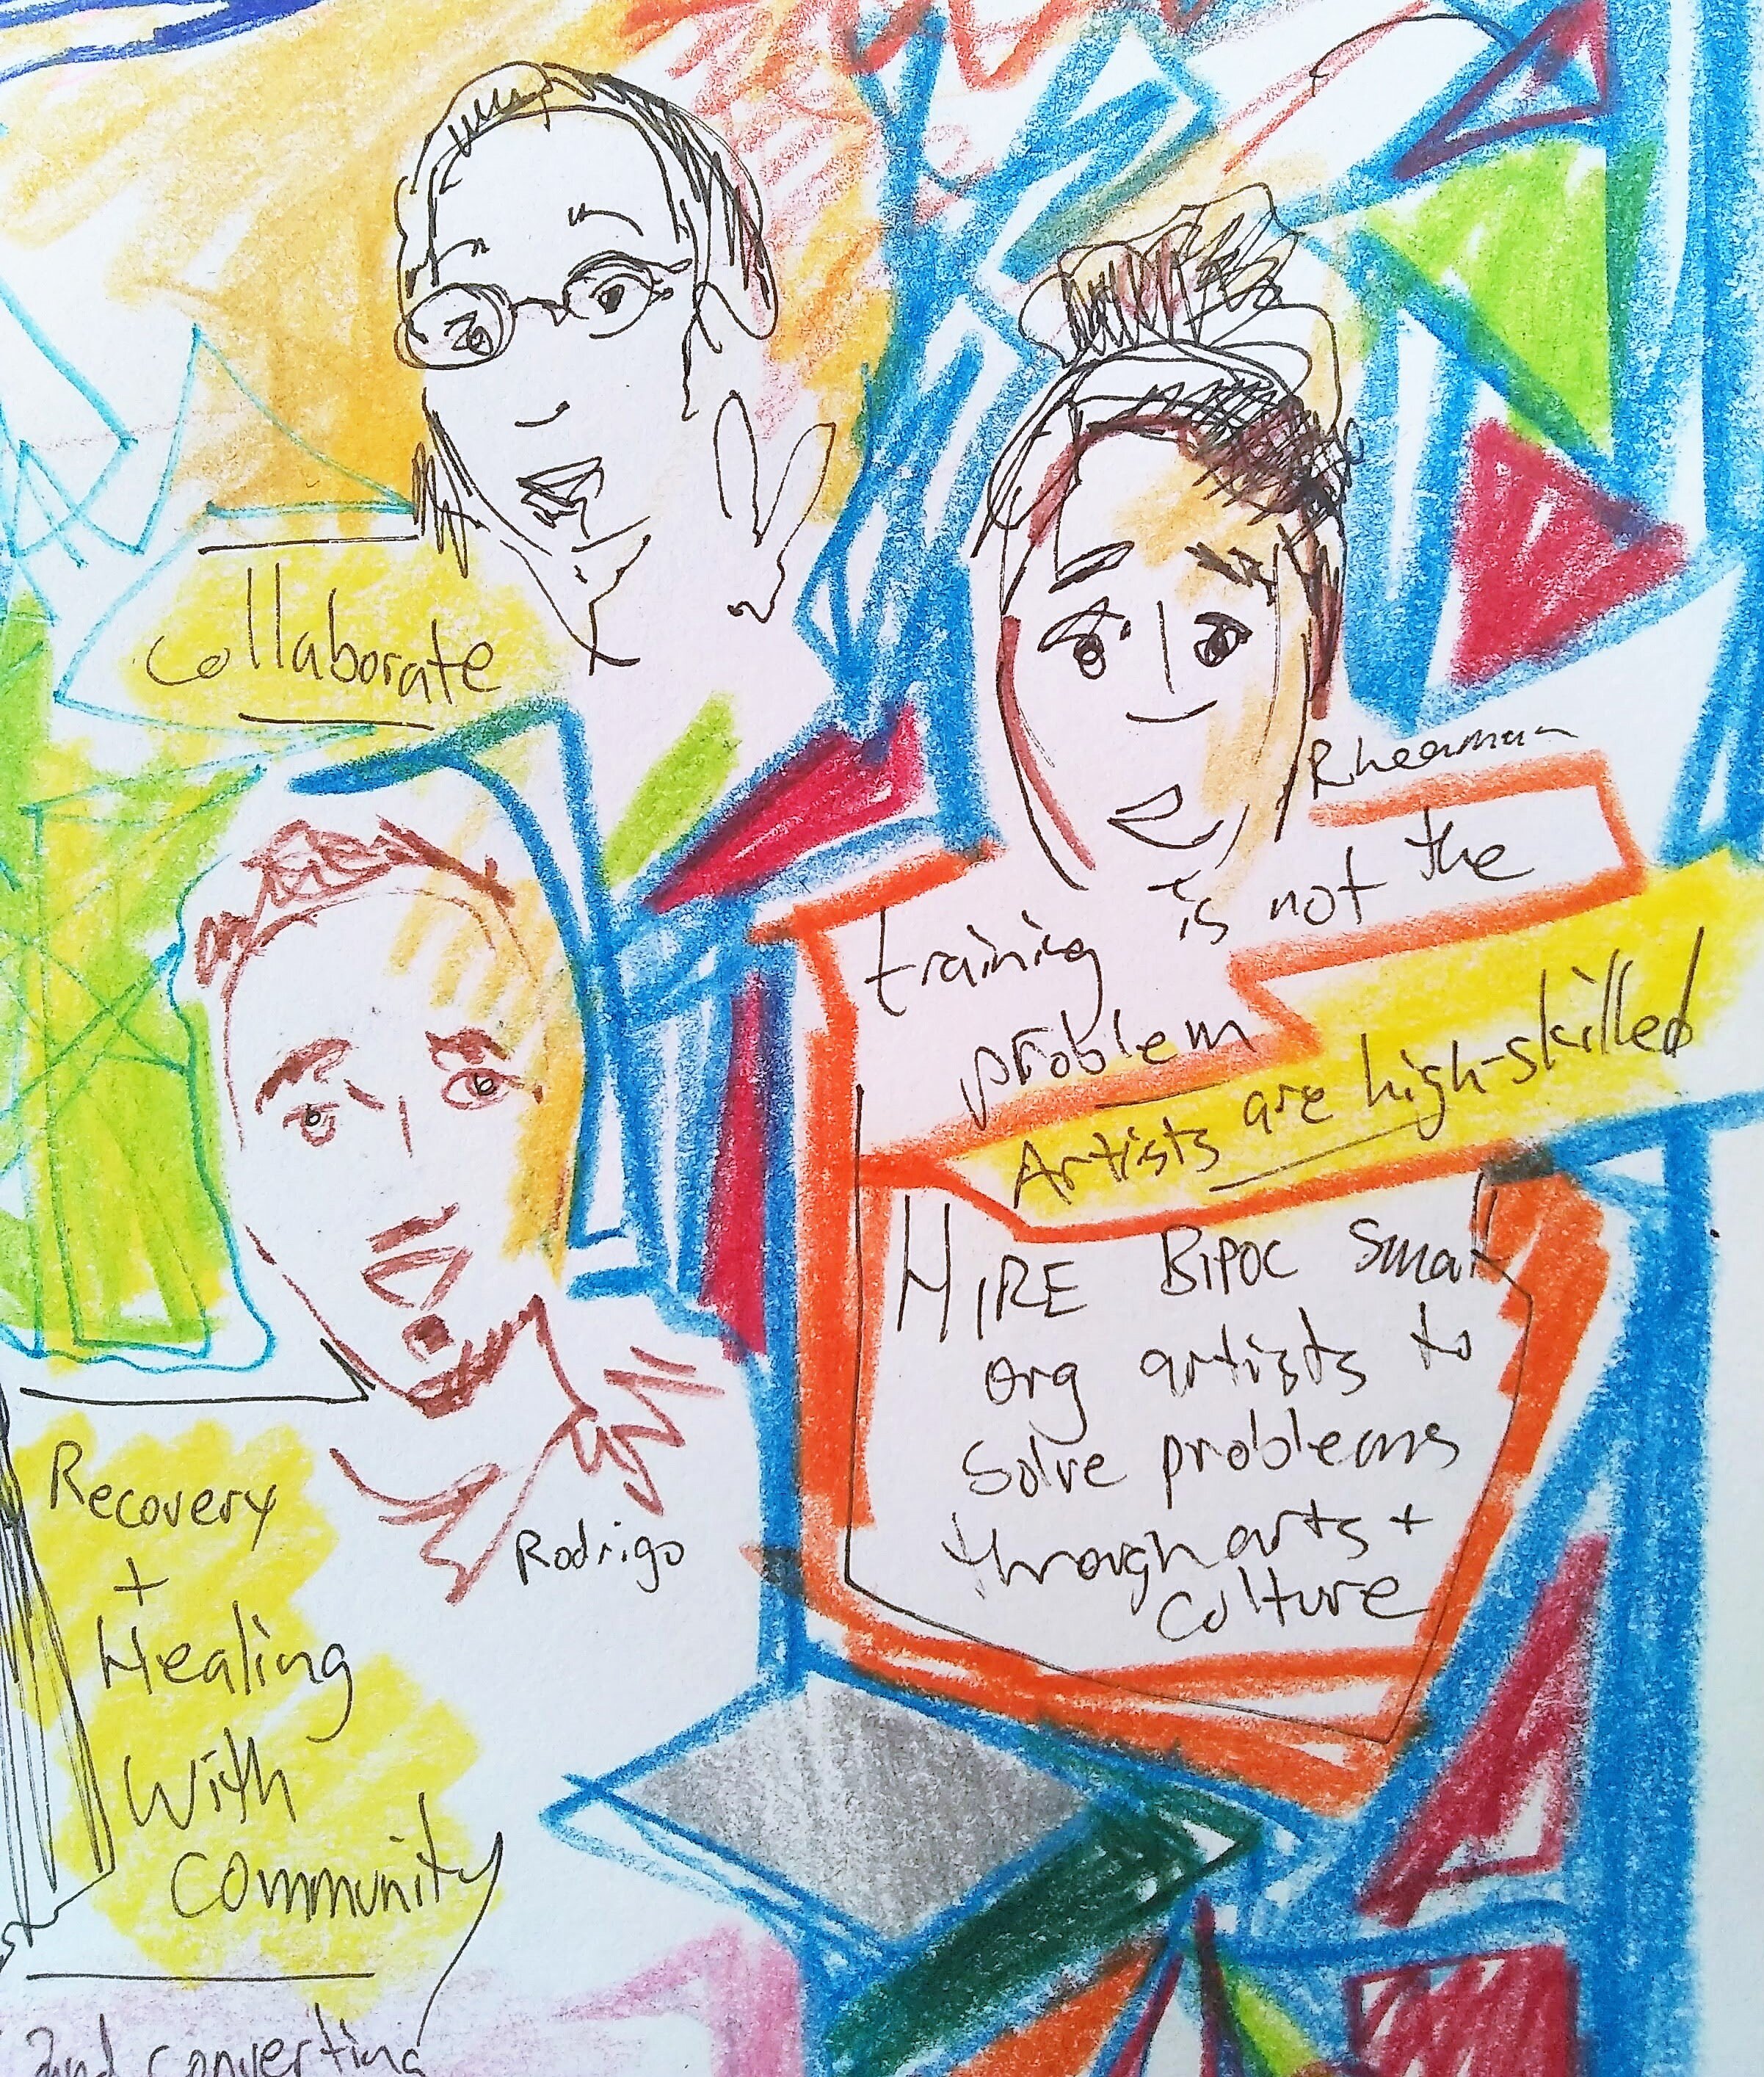 Collaborate
Rheaman
training is not the
problem
Artists are high-skilled
HIRE BIPOC Small
org artists to
Solve problems
through arts +
Culture
Rodrigo
Recovery
+
Healing
With
community
and converting